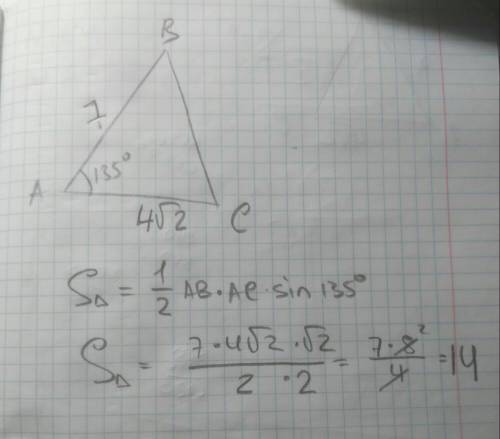 B
7
135°
A
4√2
C
S△ = 1/2 AB · AC · sin 135°
S△ = (7 · 4√2 · √2)/(2 · 2) = (7 · 8²)/4 = 14